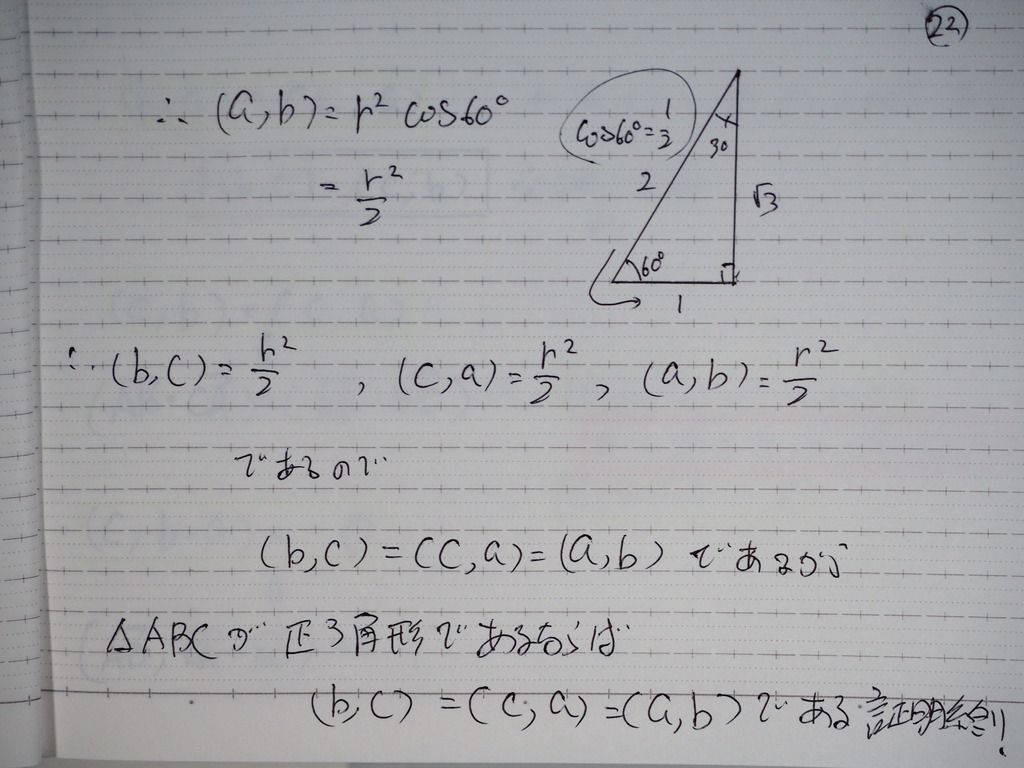 22
∴ (a,b) = r² cos60°
= r²/2
cos60° = 1/2
30
2
√3
60°
1
∴ (b,c) = r²/2 , (c,a) = r²/2 , (a,b) = r²/2
であるので
(b,c) = (c,a) = (a,b) であるから
△ABCが正3角形であるならば
(b,c) = (c,a) = (a,b) である 証明終り!